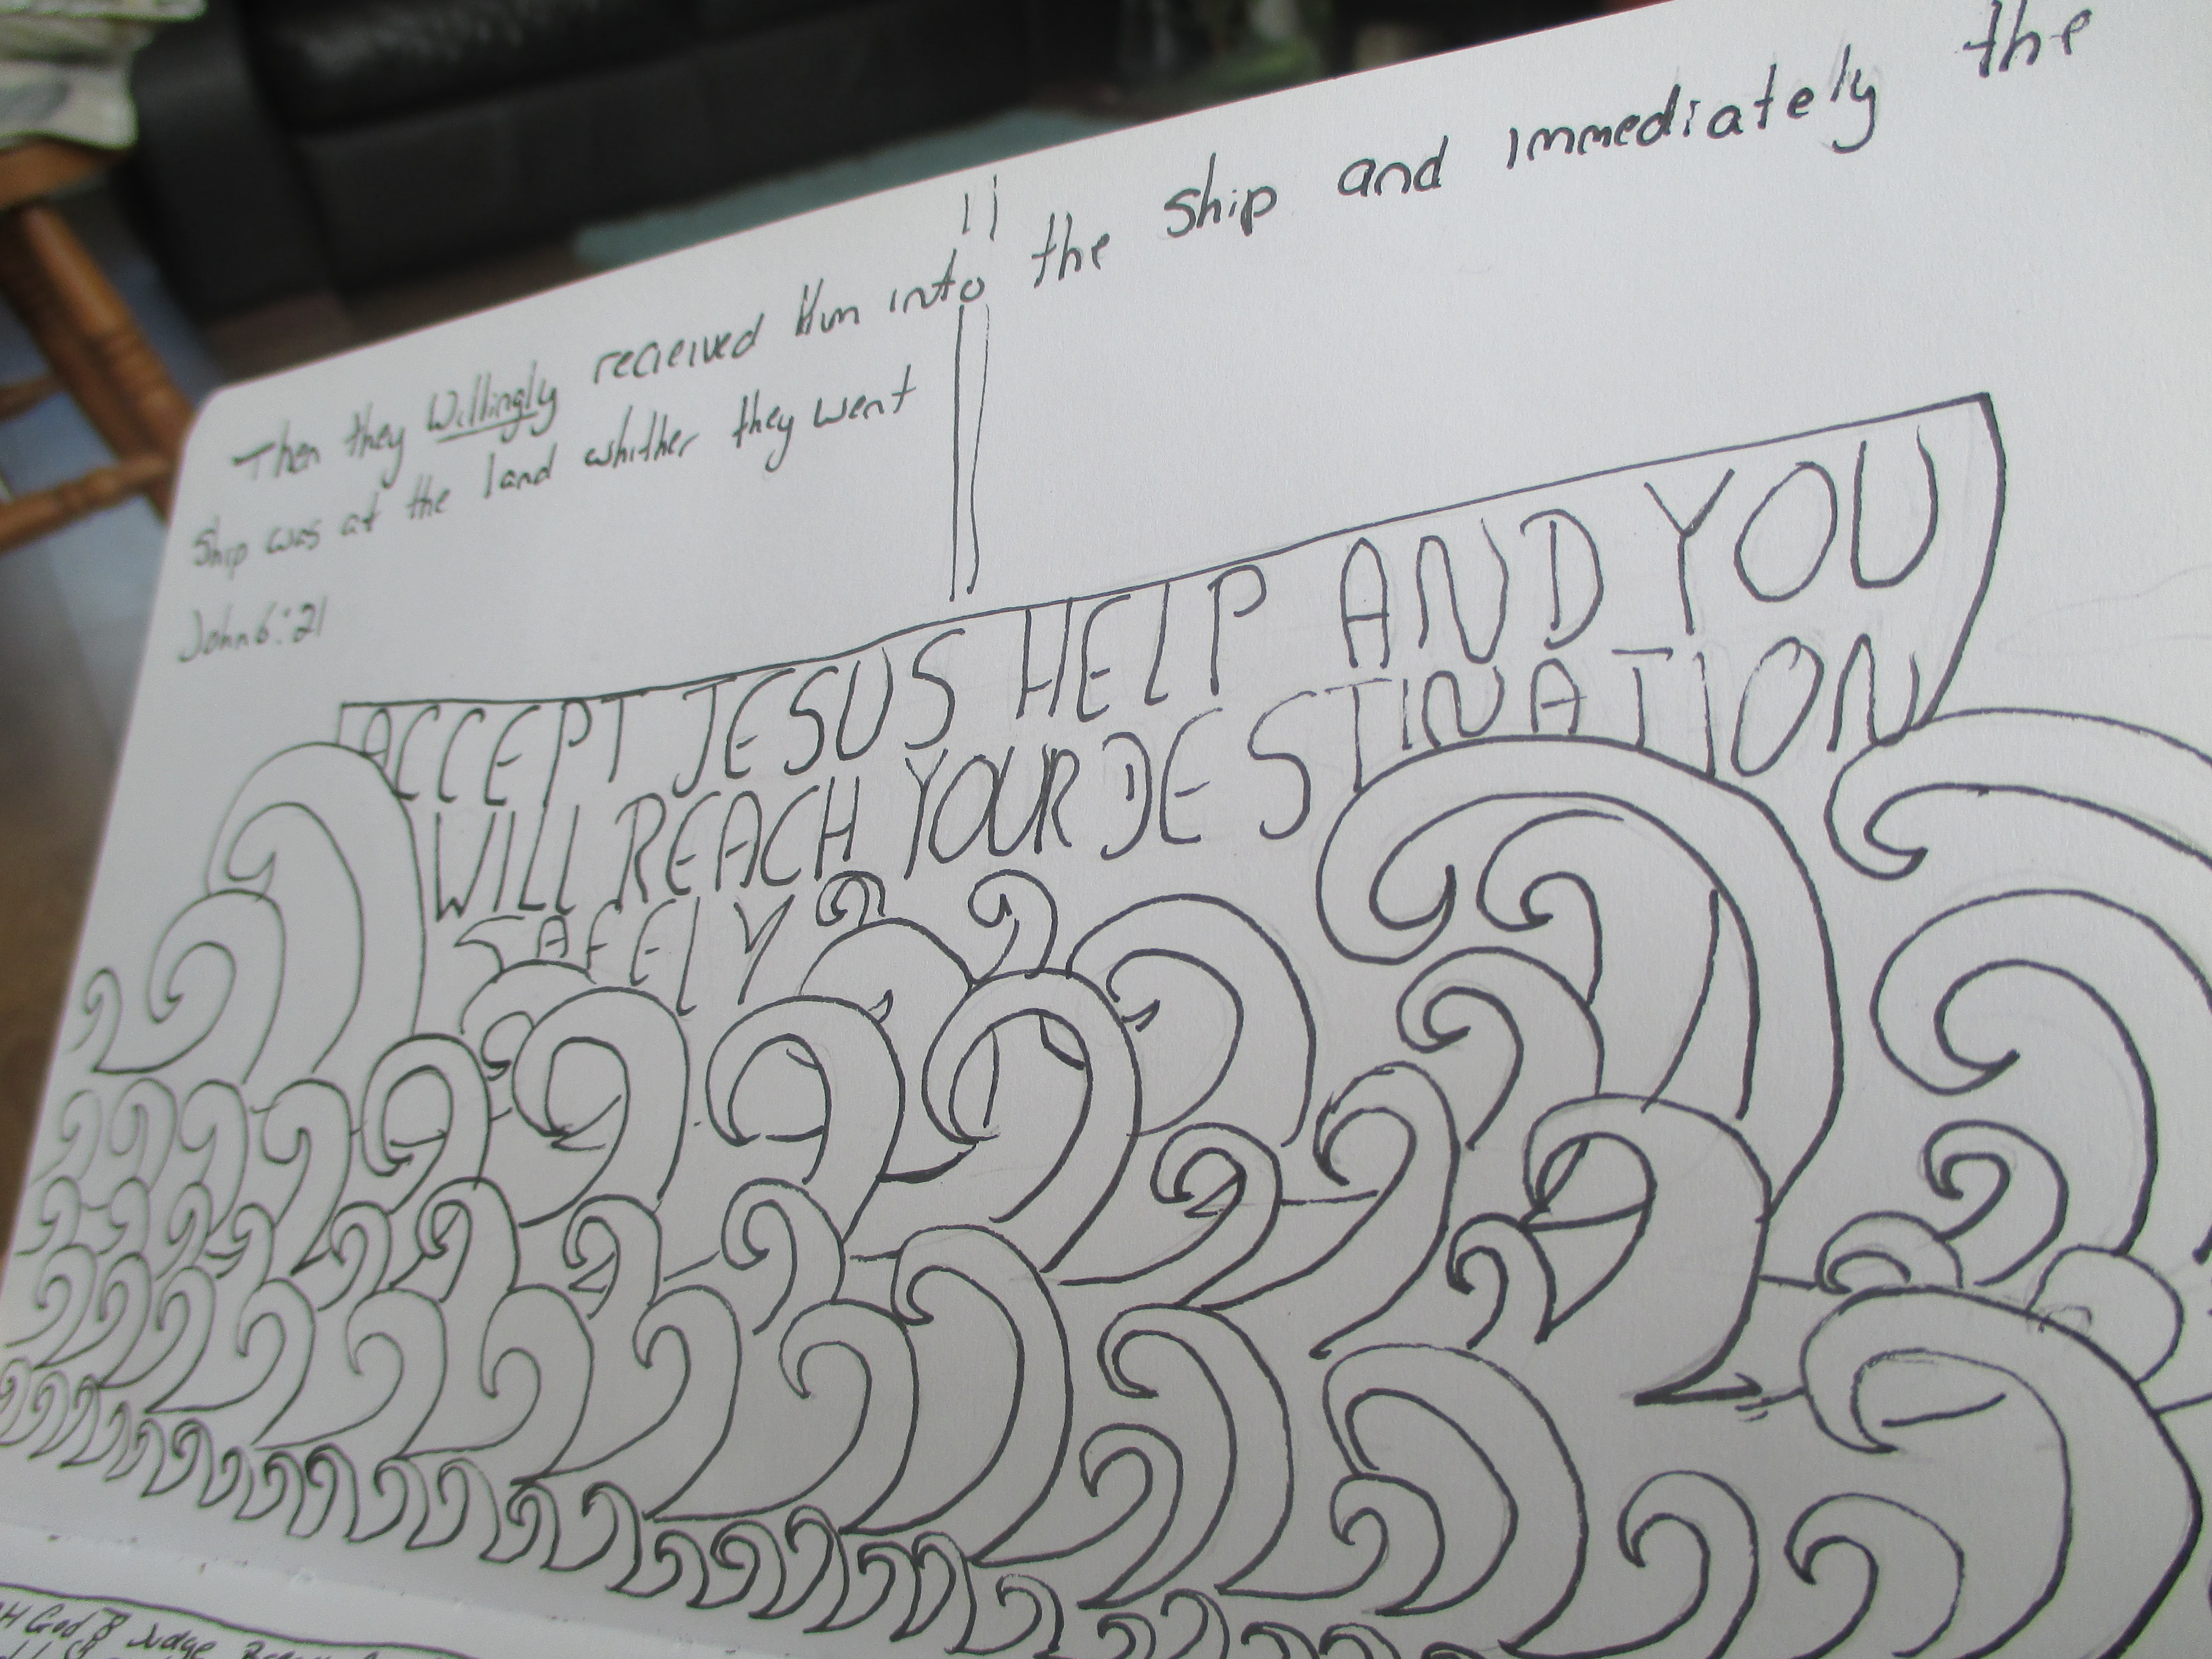 Then they Willingly recieived Him into the Ship and immediately the
Ship was at the land whither they went
John 6:21
ACCEPT JESUS HELP AND YOU
WILL REACH YOUR DESTINATION
SAFELY
God & Judge